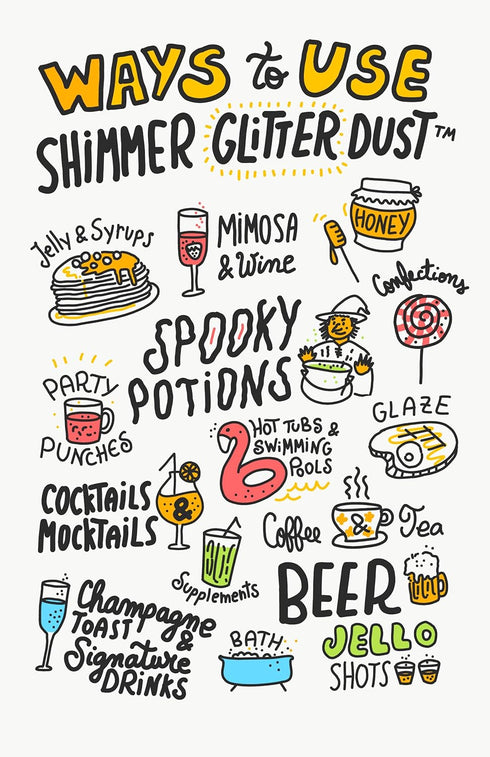 WAYS to USE
SHiMMER GLiTTER DUST™
Jelly & Syrups
MiMOSA
& Wine
HONEY
Confections
SPOOKY
POTiONS
PARTY
PUNCHES
HOT TUBS &
SWiMMiNG
POOLS
GLAZE
COCKTAiLS &
MOCKTAiLS
Coffee & Tea
Supplements
BEER
Champagne
TOAST &
Signature
DRiNKS
BATH
JELLO
SHOTS